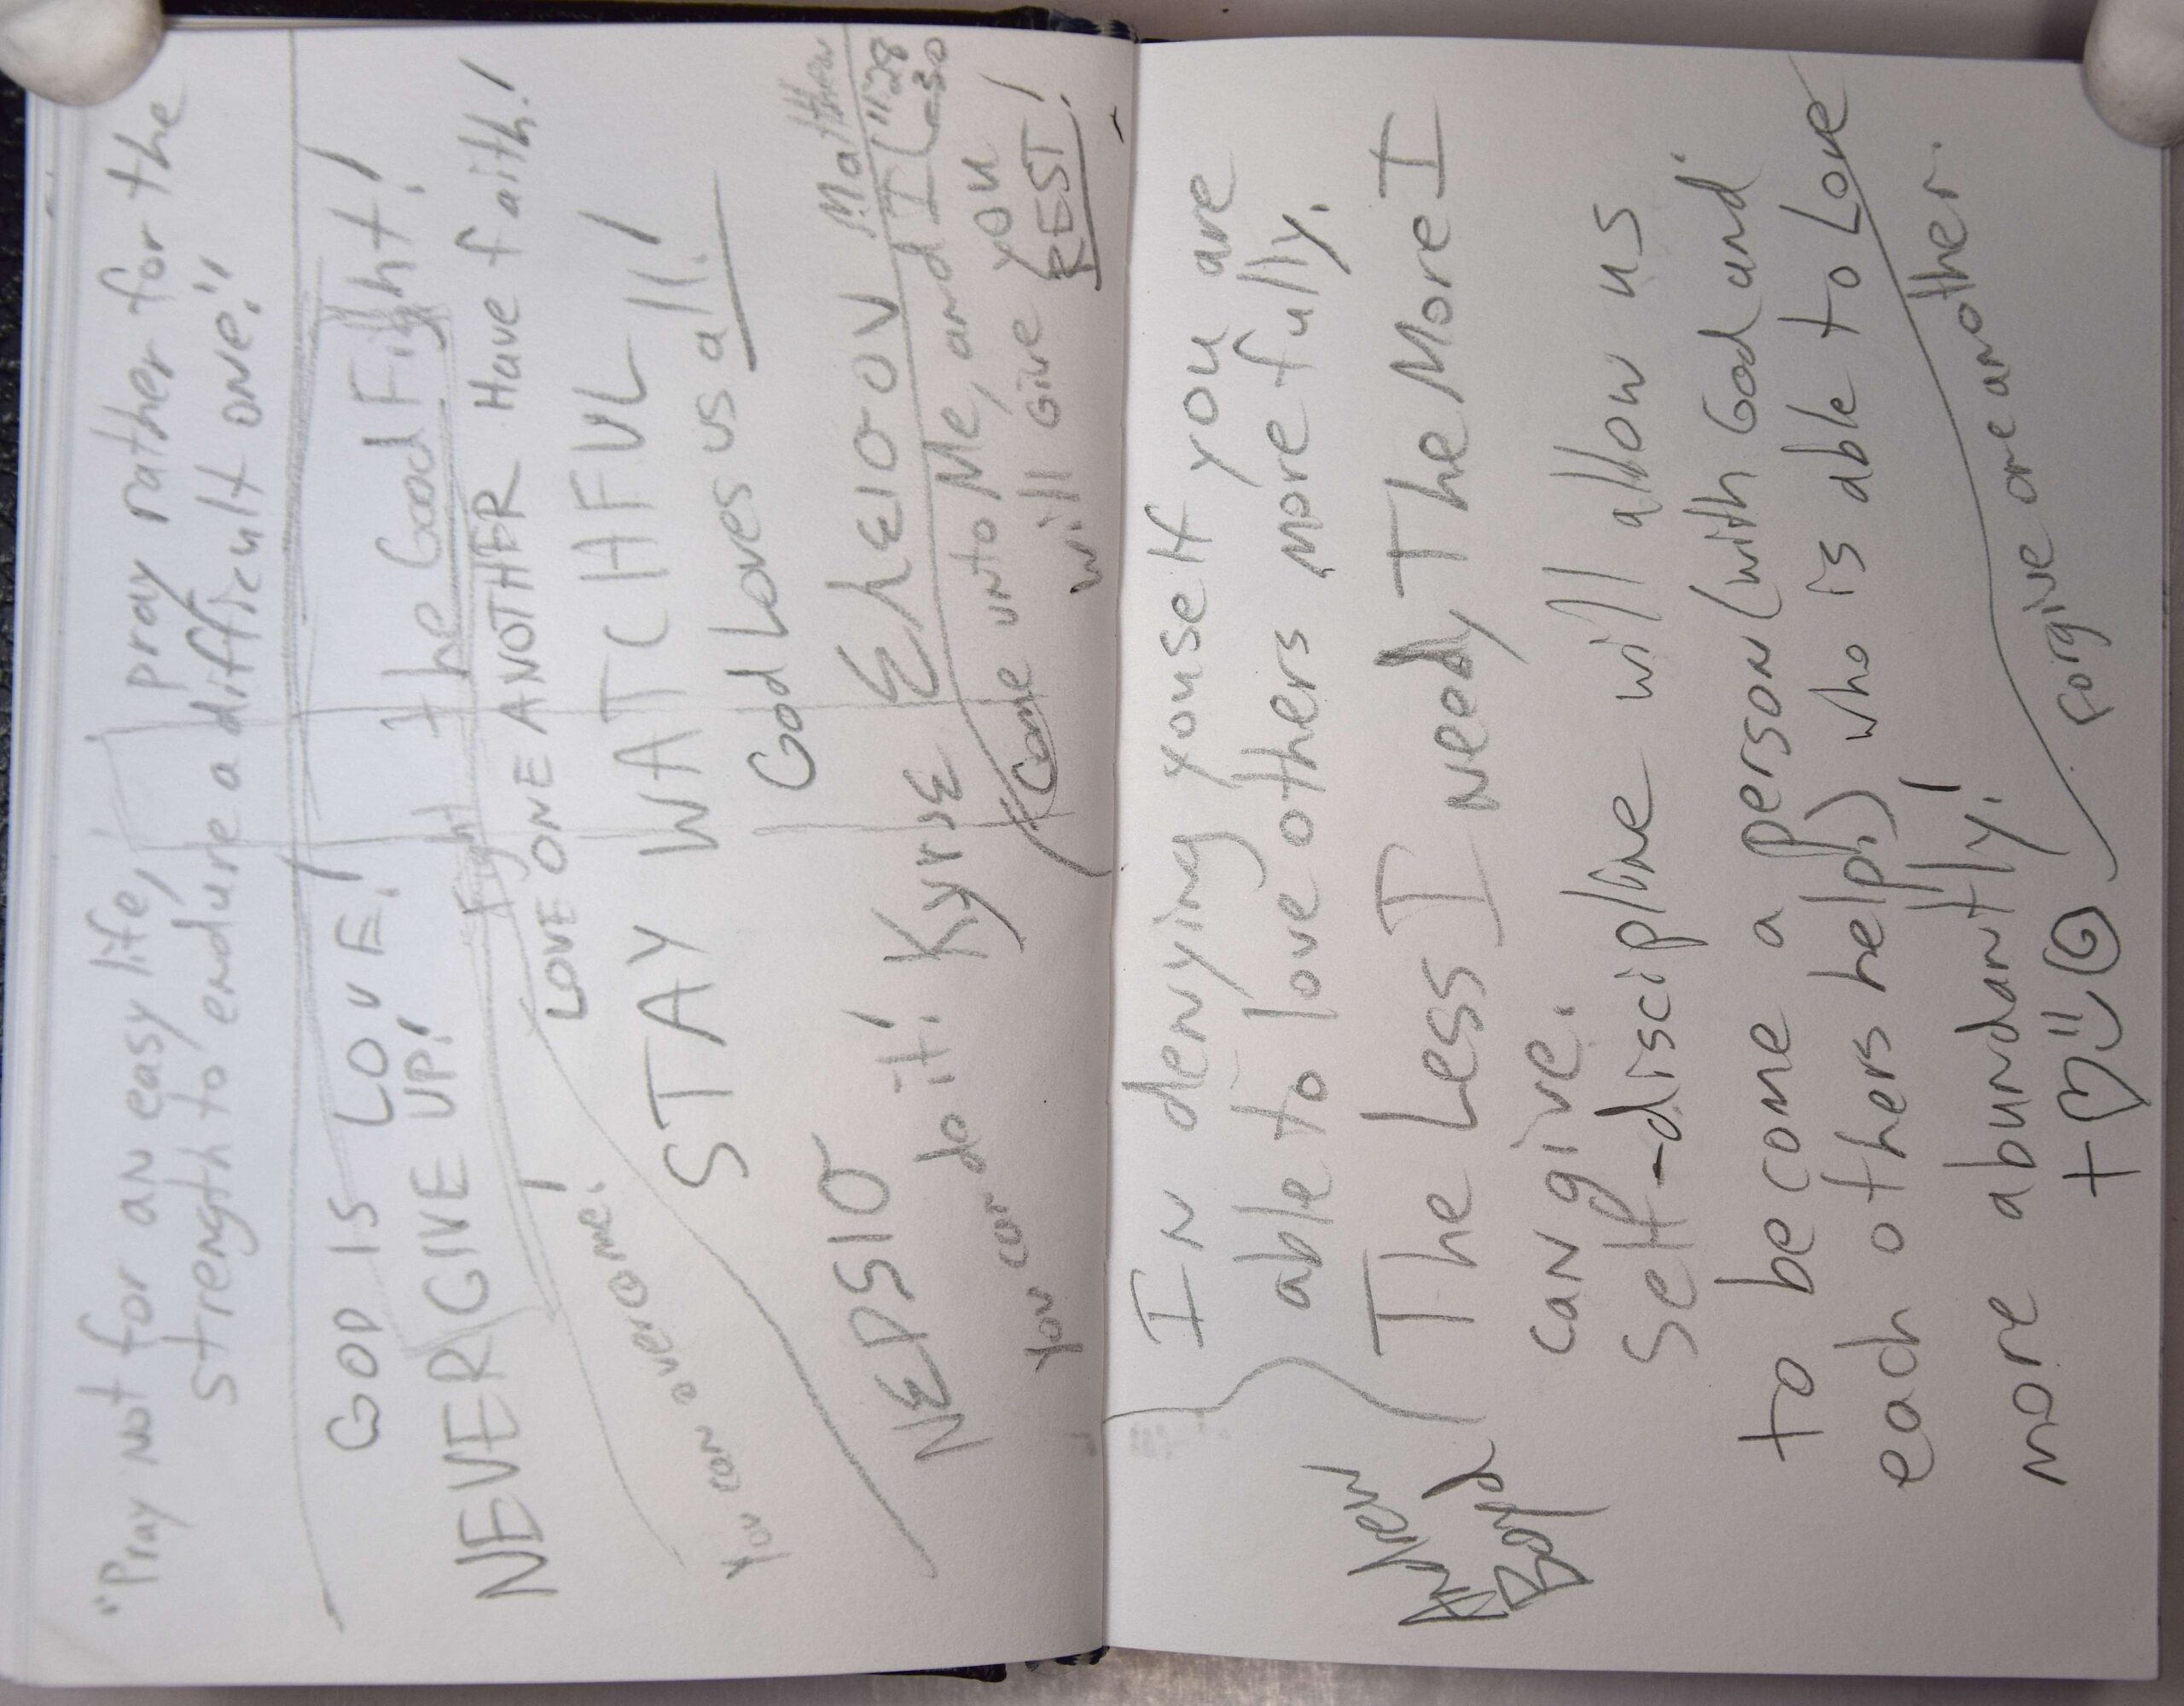 "Pray not for an easy life, pray rather for the
strength to endure a difficult one."
GOD IS LOVE!
Fight the Good Fight!
NEVER GIVE UP!
LOVE ONE ANOTHER Have faith!
You can overcome!
STAY WATCHFUL!
God Loves us all!
NEPSIO
Kyrie Eleioov
You can do it!
Matthew
11:28
-30
Come unto Me, and I
will Give you
REST!
IN denying youself you are
able to love others more fully.
Andrew
Boyd
The Less I need, The More I
can give.
Self-discipline will allow us
to become a person (with God and
each others help!) who is able to Love
more abundantly!
forgive one another.